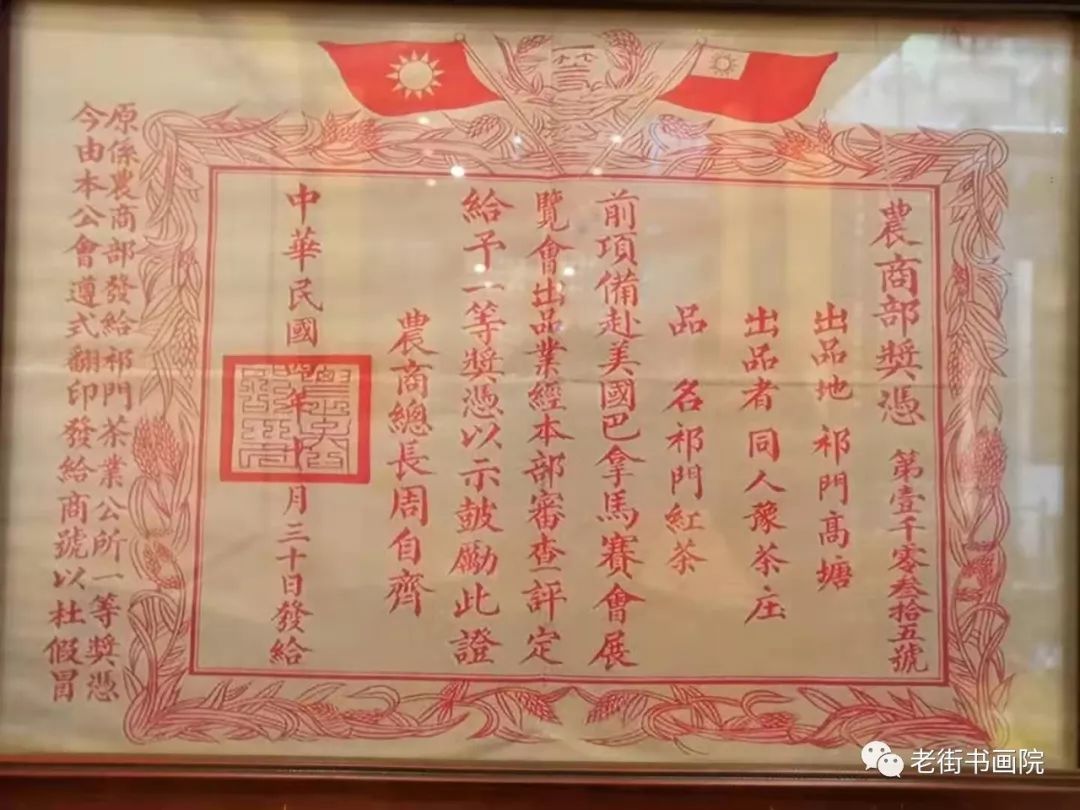 一等
農商部獎憑 第壹千零叁拾五號
出品地 祁門高塘
出品者 同人豫茶庄
品 名 祁門紅茶
前項備赴美國巴拿馬賽會展
覽會出品業經本部審查評定
給予一等獎憑以示鼓勵此證
農商總長周自齊
中華民國四年十月三十日發給
原係農商部發給祁門茶業公所一等獎憑
今由本公會遵式翻印發給商號以杜假冒
老街书画院